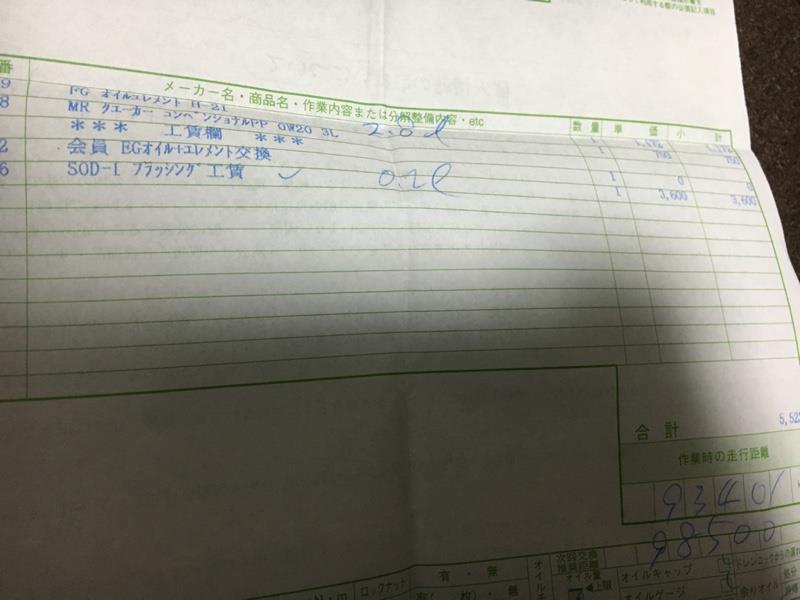 して利用する際の必須記入項目
番 メーカー名・商品名・作業内容または分解整備内容・etc 数量 単価 小計
9 EG オイルエレメント H-21 1
8 MR クエーカー コンベンショナルPP 0W20 3L 2.8ℓ 1 750 750
*** 工賃欄 ***
2 会員 EGオイル+エレメント交換 1 0 0
6 SOD-1 フラッシング工賃 ✓ 0.2ℓ 1 3,600 3,600
合計 5,52
作業時の走行距離
93401
98500
次回交換
推奨距離
オイル量
上限
有・無
ロックナット
N・m
オイルキャップ
オイルゲージ
ドレンコックからの漏れ
余りオイル
処分